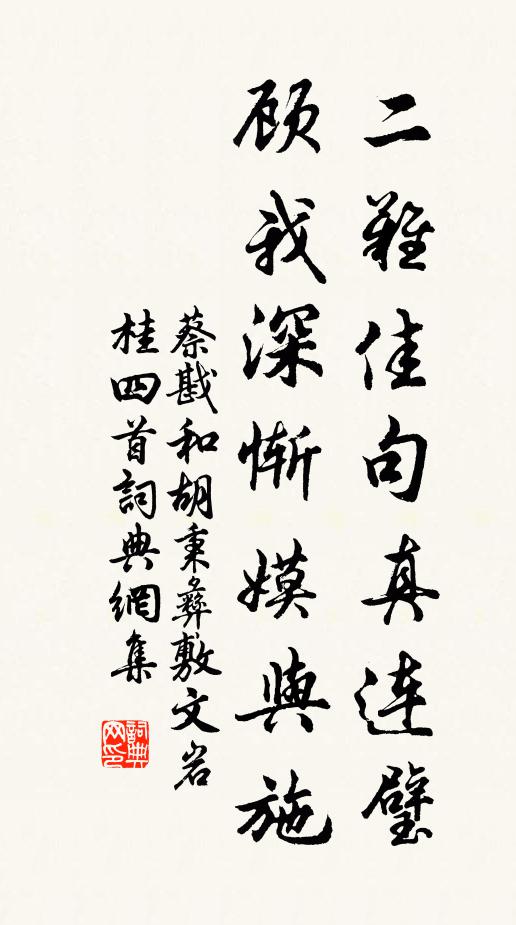 二難佳句真連璧
顾我深慚嫫與施
蔡戡和胡秉彝敷文岩
桂四首詞典網集
詞典
网印